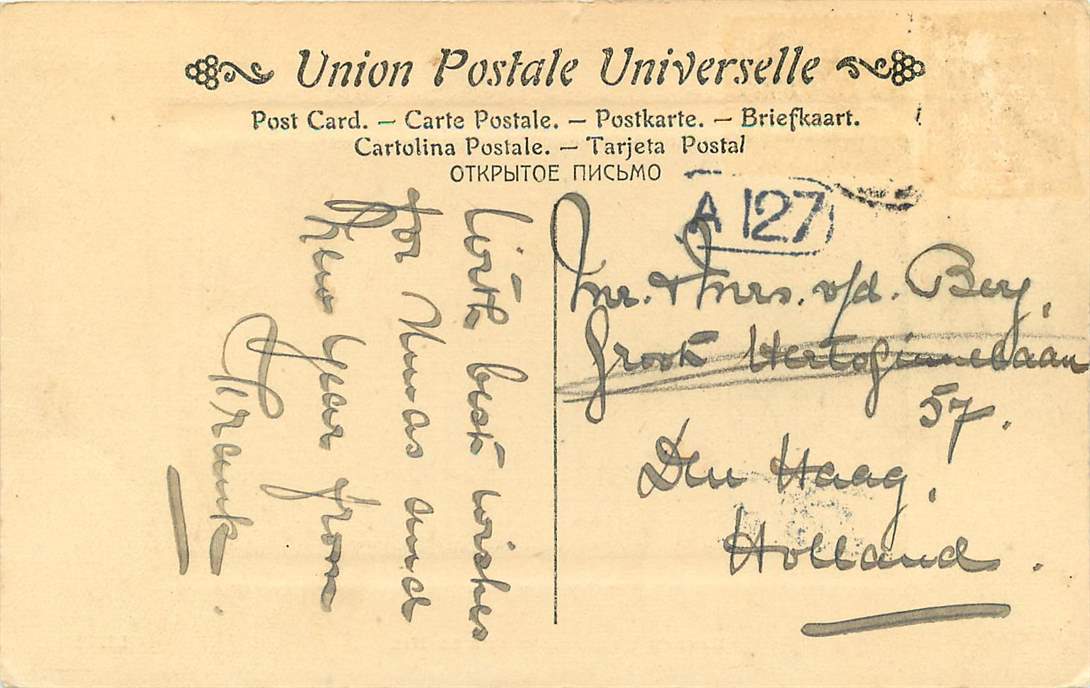 Union Postale Universelle
Post Card. — Carte Postale. — Postkarte. — Briefkaart.
Cartolina Postale. — Tarjeta Postal
ОТКРЫТОЕ ПИСЬМО
A 127
With best wishes
for Xmas and
New Year from
Frank.
Mr. & Mrs. v/d. Berg,
Groot Hertoginnelaan
57.
Den Haag,
Holland.